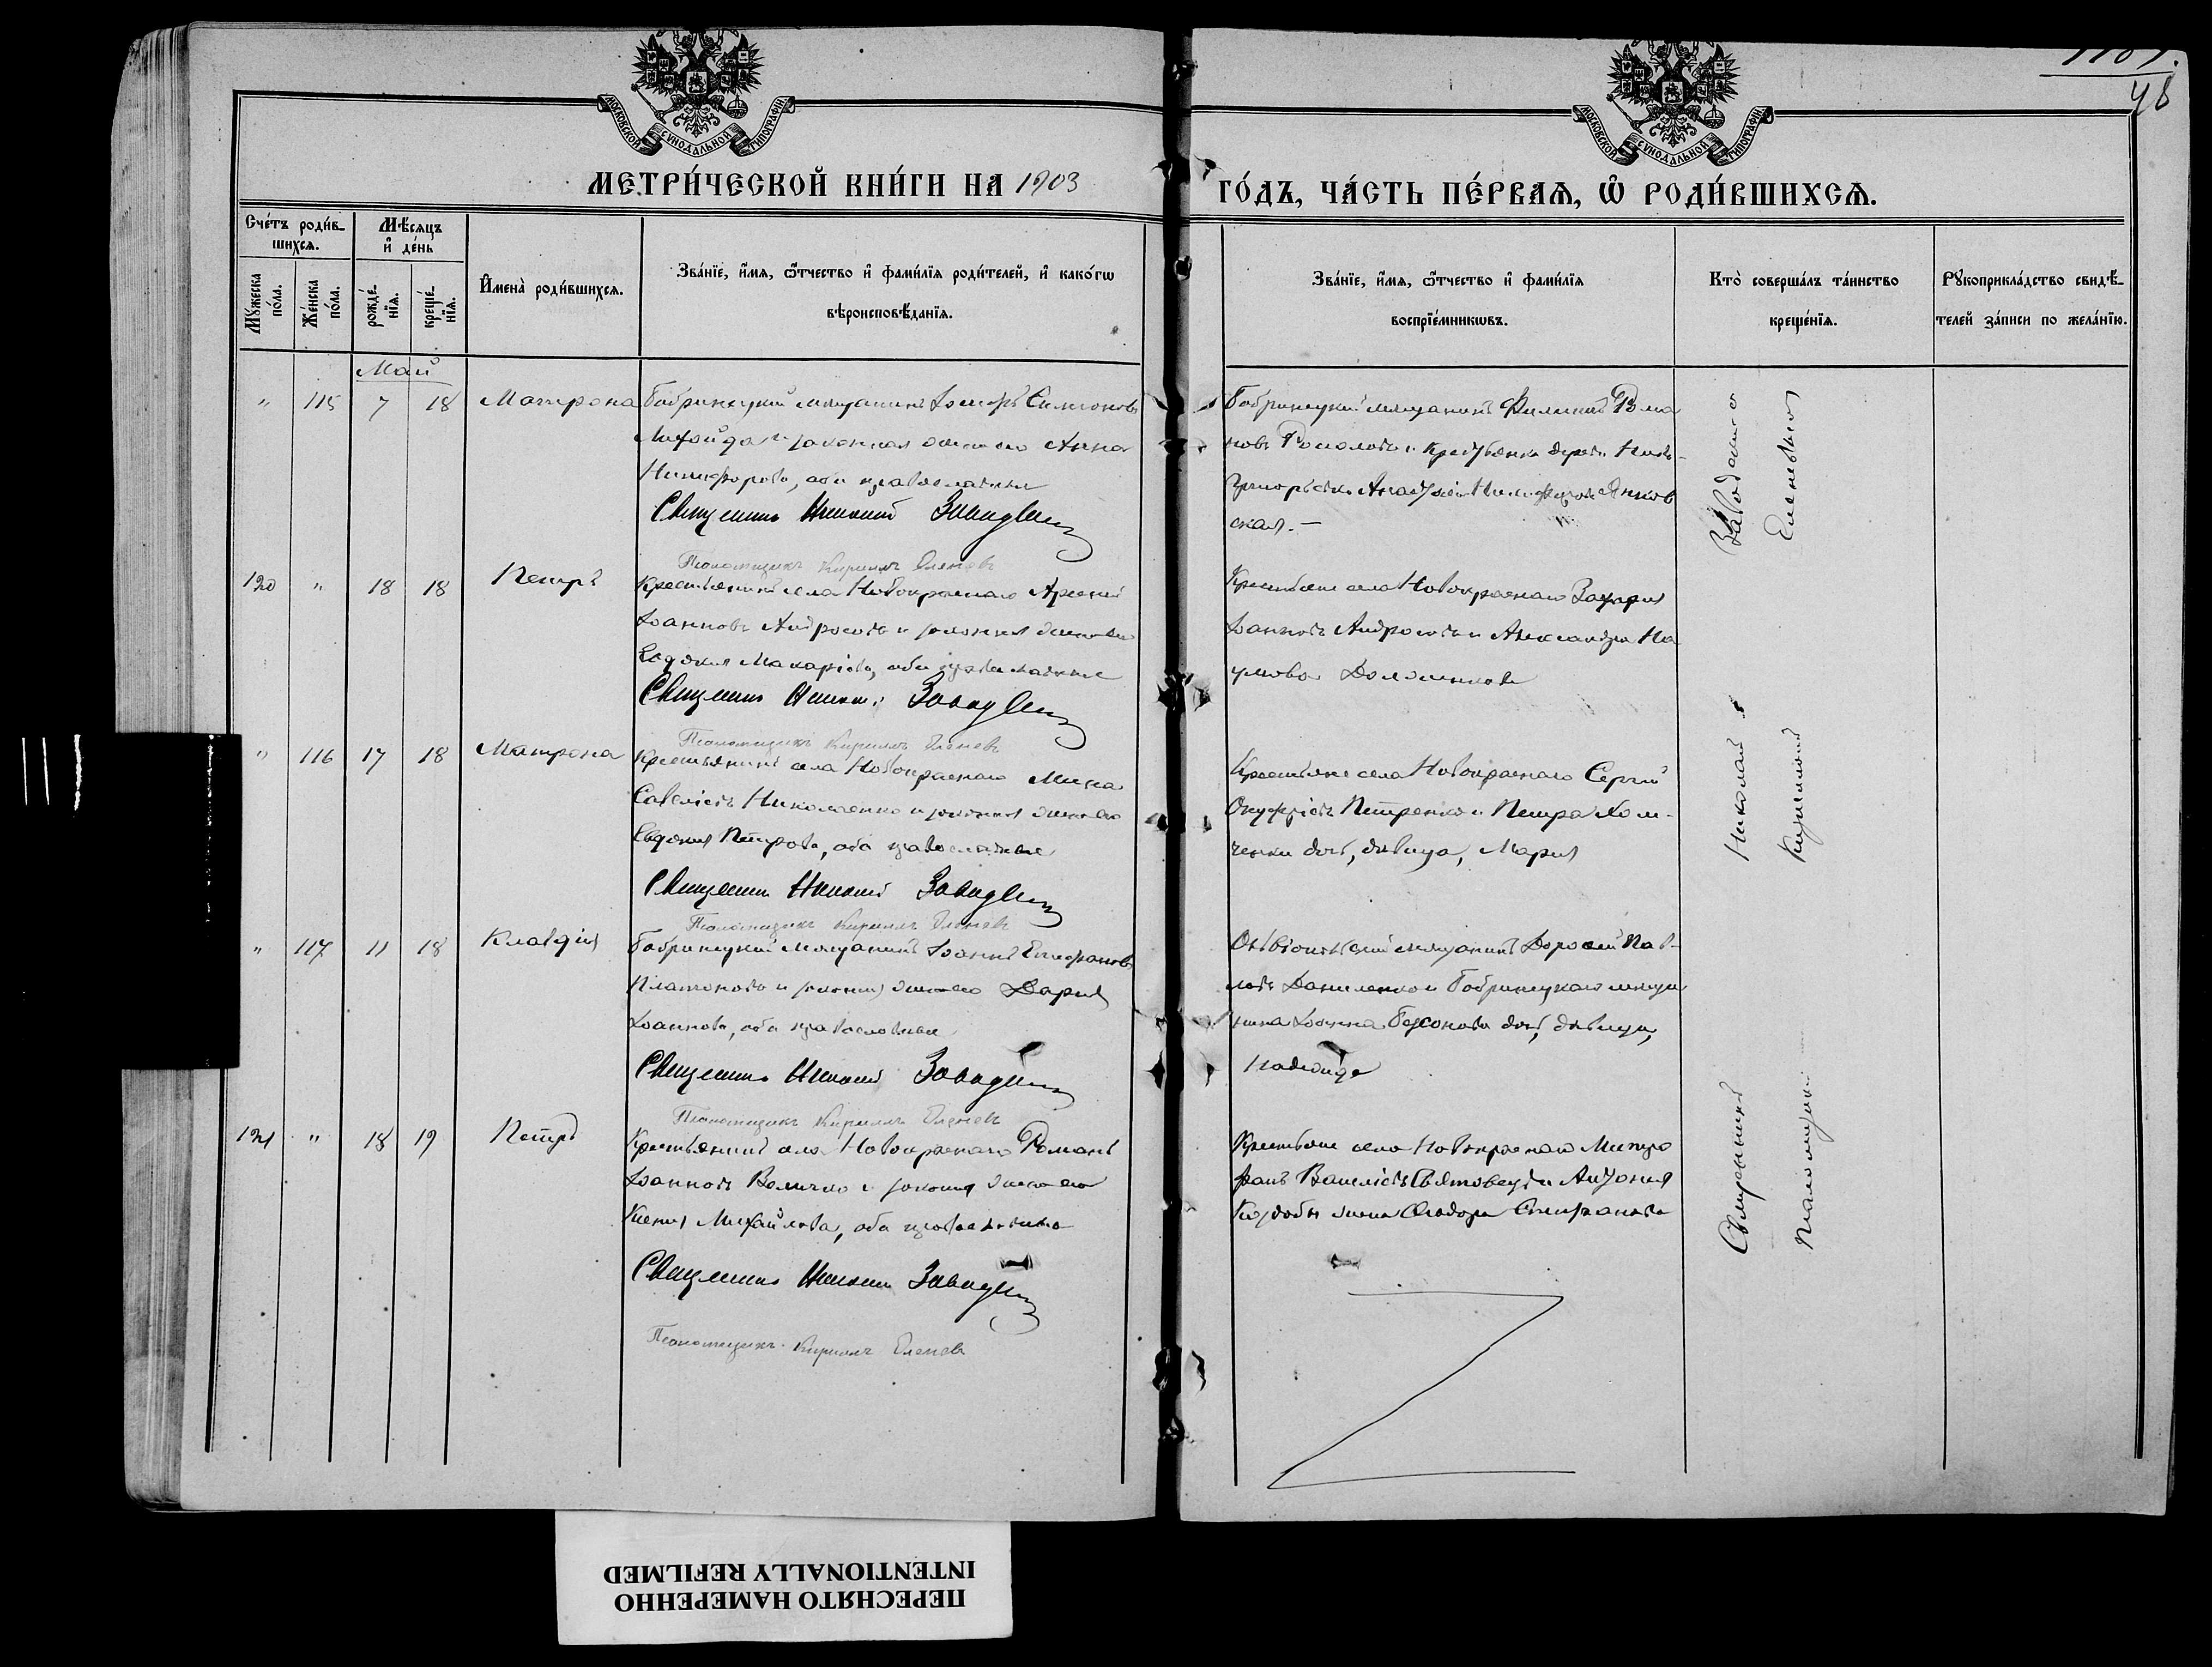 1101.
48
МОСКОВСКОЙ СѴНОДАЛЬНОЙ ТИПОГРАФІИ
МОСКОВСКОЙ СѴНОДАЛЬНОЙ ТИПОГРАФІИ
МЕТРИ́ЧЕСКОЙ КНИ́ГИ НА 1903
ГО́ДЪ, ЧА́СТЬ ПЕ́РВАѦ, Ѡ҆ РОДИ́ВШИХСѦ.
Сче́тъ роди́в-
шихсѧ.
Мѣ́сѧцъ
и҆ де́нь
Мꙋ́жеска
по́ла.
Же́нска
по́ла.
рожде́-
нїѧ.
креще́-
нїѧ.
И҆мена̀ роди́вшихсѧ.
Зва́нїе, и҆́мѧ, ѻ҆́тчество и҆ фамѝлїѧ роди́телей, и҆ како́гѡ
вѣроисповѣ́данїѧ.
Зва́нїе, и҆́мѧ, ѻ҆́тчество и҆ фамѝлїѧ
воспрїе́мникѡвъ.
Кто̀ соверша́лъ та́инство
креще́нїѧ.
Рꙋкоприкла́дство свидѣ́-
телей за́писи по жела́нїю.
Май
" 115 7 18 Матрона
Бобринецкий мещанинъ Іосифъ Симоновъ
и законная жена его Анна
Никифорова, оба православные
Священникъ Николай Завадскій
Псаломщикъ Кириллъ Еленевъ
Бобринецкий мещанинъ Филиппъ Рома-
новъ и крестьянка дерев. Ново-
григорьевки Анастасія Никифорова Янков-
ская. —
120 " 18 18 Петръ
Крестьянинъ села Новокраснаго Арсеній
Іоанновъ Андросовъ и законная жена его
Евдокия Макаріева, оба православные
Священникъ Николай Завадскій
Псаломщикъ Кириллъ Еленевъ
Крестьяне села Новокраснаго Захарія
Іоанновъ Андросовъ и Александра На-
умова
" 116 17 18 Матрона
Крестьянинъ села Новокраснаго Мина
Савеліевъ Николаенко и законная жена его
Евдокия Петрова, оба православные
Священникъ Николай Завадскій
Псаломщикъ Кириллъ Еленевъ
Крестьяне села Новокраснаго Сергій
Онуфріевъ Петренко и Петра Хом-
ченки дочь, дѣвица, Марія
" 117 11 18 Клавдія
Бобринецкий мещанинъ Іоаннъ Епифановъ
Платоновъ и законная жена его Дарія
Іоаннова, оба православные
Священникъ Николай Завадскій
Псаломщикъ Кириллъ Еленевъ
Ольвіопольскій мещанинъ Дорофей Пав-
ловъ Даниленко и Бобринецкаго мещан-
нина Іоанна Безсонова дочь, дѣвица,
Надежда
121 " 18 19 Петръ
Крестьянинъ села Новокраснаго Романъ
Іоанновъ Величко и законная жена его
Ксенія Михайлова, оба православные
Священникъ Николай Завадскій
Псаломщикъ Кириллъ Еленевъ
Крестьяне села Новокраснаго Митро-
фанъ Василіевъ и Антонія
Козловы жена Ѳеодора Стефанова
Священникъ Николай Завадский
Псаломщикъ Кириллъ Еленевъ
ПЕРЕСНЯТО НАМЕРЕННО
INTENTIONALLY REFILMED